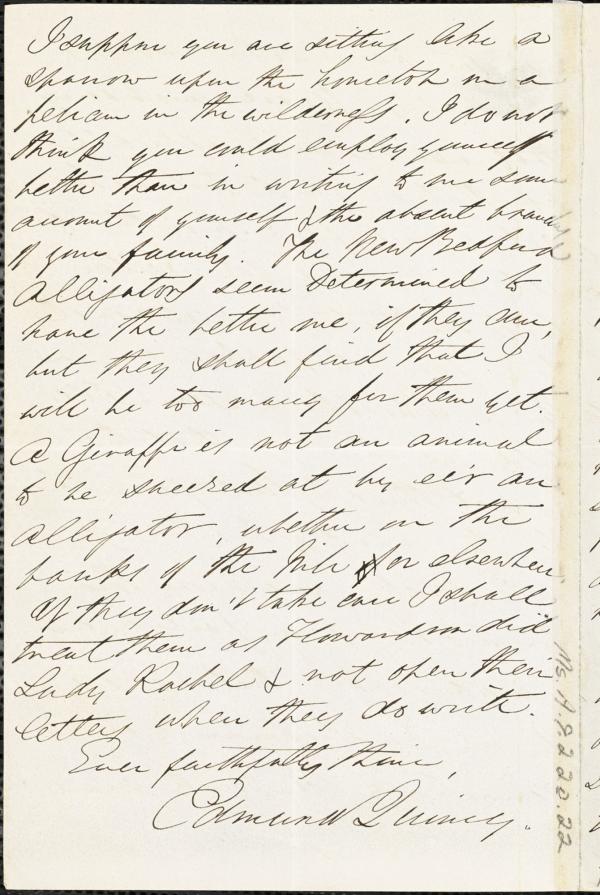 I suppose you are sitting like a
sparrow upon the housetop or a
pelican in the wilderness. I do not
think you could employ yourself
better than in writing to me some
account of yourself & the absent branch
of your family. The New Bedford
Alligators seem determined to
have the better me, if they can,
but they shall find that I
will be too many for them yet.
A Giraffe is not an animal
to be sneezed at by e'er an
Alligator, whether on the
banks of the Nile or elsewhere
If they don't take care I shall
treat them as did
Lady Rachel & not open their
letters when they do write.
Ever faithfully thine,
Edmund Quincy.
Ms.A.9.2.20.22